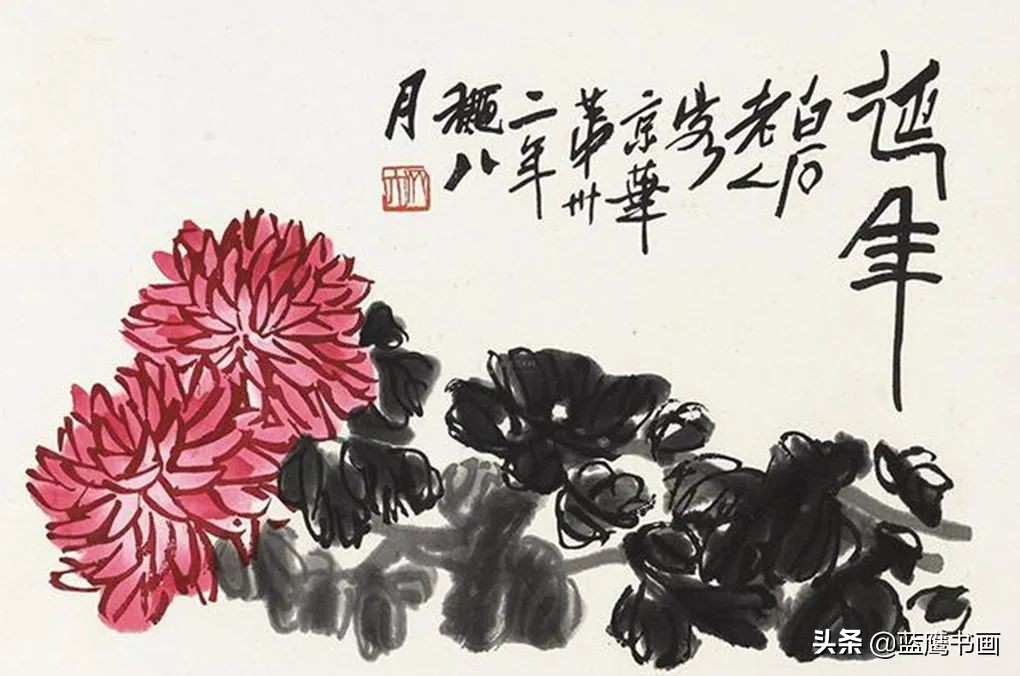 延年
白石
老人
客
京華
第卅
二年
穐八
月
头条 @蓝鹰书画